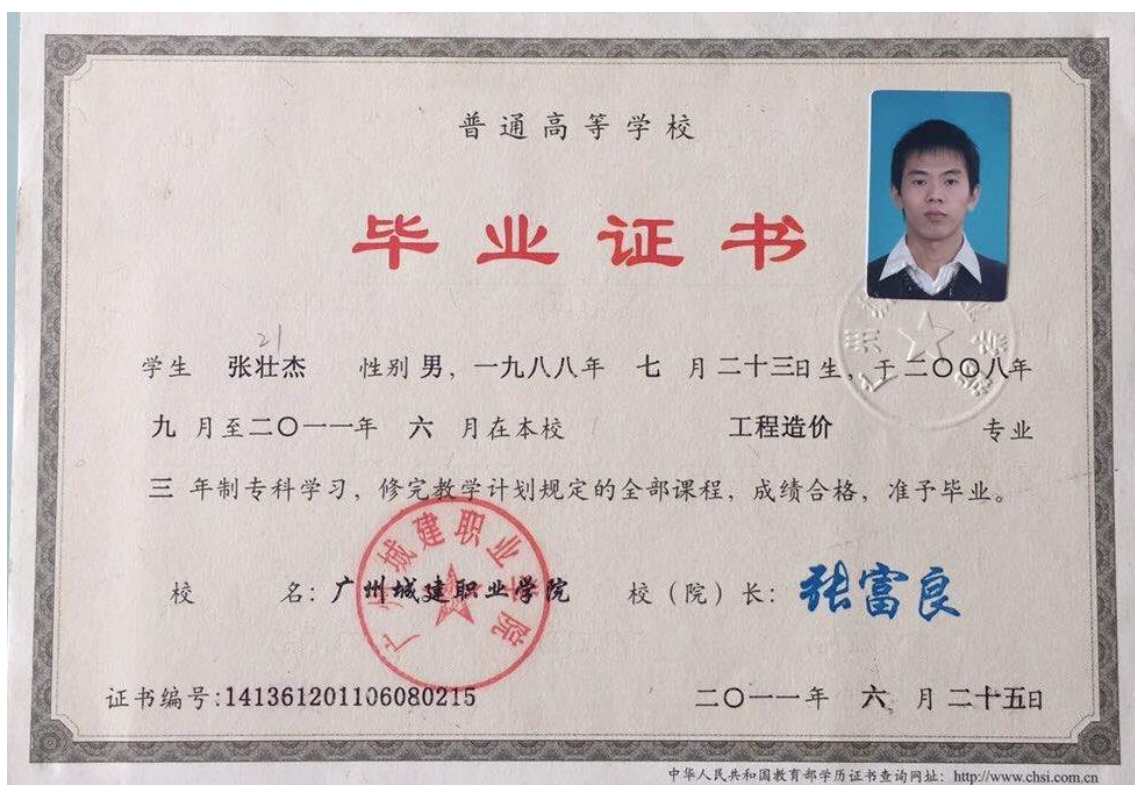 普通高等学校
毕业证书
21
学生 张壮杰 性别 男，一九八八年 七 月 二十三日生，于二〇〇八年
九 月至二〇一一年 六 月在本校 工程造价 专业
三 年制专科学习，修完教学计划规定的全部课程，成绩合格，准予毕业。
广州城建职业学院
校 名：广州城建职业学院 校（院）长：张富良
证书编号:141361201106080215 二〇一一年 六 月 二十五日
中华人民共和国教育部学历证书查询网址：http://www.chsi.com.cn